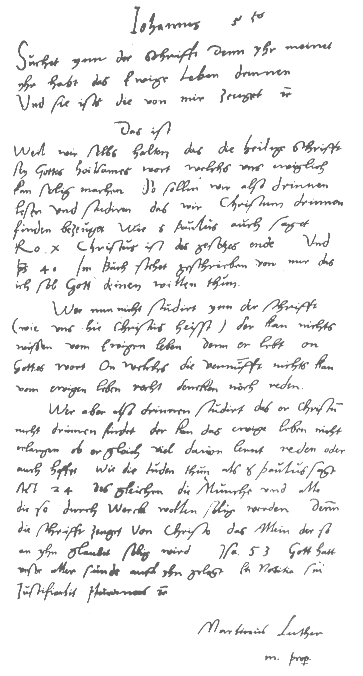 Johannes 5 to
Suchet ynn der schrifft denn yhr meinet
yhr habt das Ewige Leben drinnen
Und sie ists die von mir zeuget rc
Das ist
Weil wir selbs halten das die heilige schrifft
sey Gottes heilsames wort welchs uns ewiglich
kan selig machen So sollen wir also drinnen
lesen und studiren das wir Christum drinnen
finden bezeuget Wie S Paulus auch saget
Ro. X Christus ist des gesetzes ende Und
Ps 40 Im Buch stehet geschrieben von mir das
ich sol Gott deinen willen thun.
Wer nun nicht studirt ynn der schrifft
(wie uns hie Christus heisst) der kan nichts
wissen vom Ewigen leben denn er lebt on
Gottes wort On welchs die vernunfft nichts kan
vom ewigen leben recht dencken noch reden.
Wer aber also drinnen studirt das er Christum
nicht drinnen findet der kan das ewige leben nicht
erlangen ob er gleich viel davon lernet reden oder
auch hoffet Wie die Jüden thun als S Paulus sagt
Act 24 des gleichen die Münche und alle
die so durch Werck wollen selig werden Denn
die schrifft zeuget Von Christo das Allein der so
an yhn glaubet selig wird Jsa. 53 Gott hatt
unser aller sunde auff yhn gelegt
Justificabit rc
Martinus Luther
m. prop.